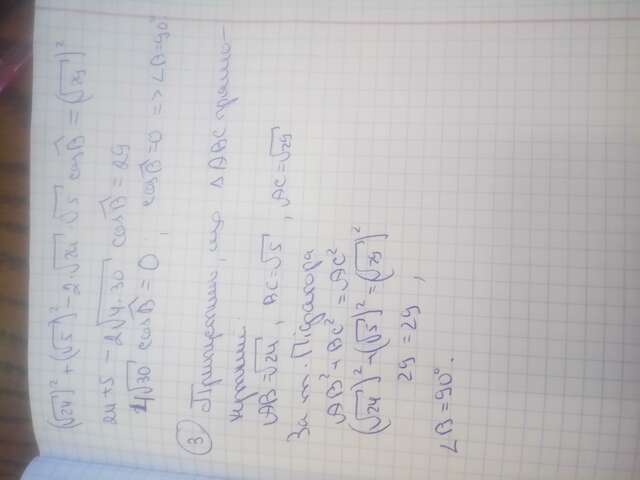 (√24)² + (√5)² - 2·√24·√5 cos B̂ = (√29)²
24+5 - 2√4·30 cos B̂ = 29
4√30 cos B̂ = 0, cos B̂ = 0 => ∠B=90°
③ Припустимо, що ΔABC прямо-
кутний.
AB=√24, BC=√5, AC=√29
За т. Піфагора
AB² + BC² = AC²
(√24)² + (√5)² = (√29)²
29 = 29,
∠B = 90°.